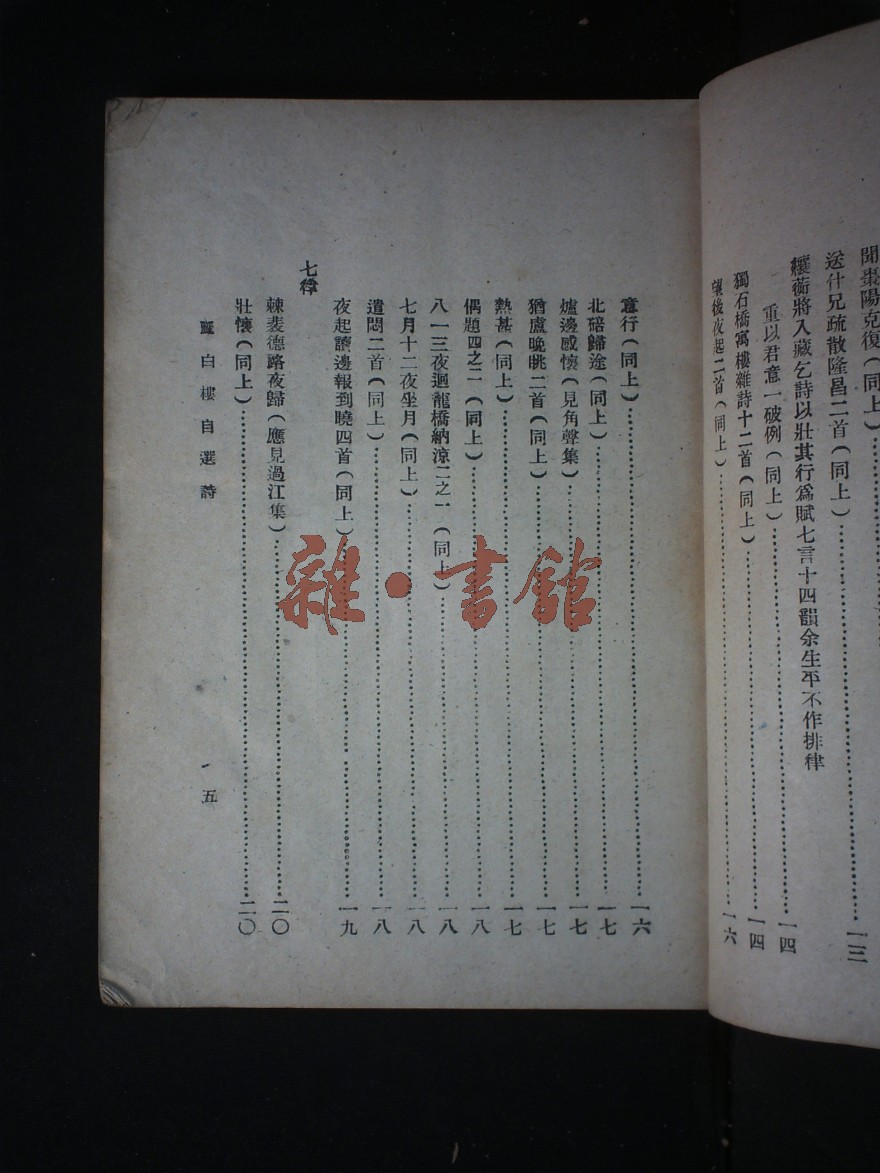 聞棗陽克復(同上)……一三
送什兄疏散隆昌二首(同上)
纕蘅將入藏乞詩以壯其行爲賦七言十四韻余生平不作排律
重以君意一破例(同上)……一四
獨石橋寓樓雜詩十二首(同上)……一四
望後夜起二首(同上)……一六
意行(同上)……一六
北碚歸途(同上)……一七
爐邊感懷(見角聲集)……一七
猶盧晚眺二首(同上)……一七
熱甚(同上)……一七
偶題四之二(同上)……一八
八一三夜迴龍橋納涼二之一(同上)……一八
七月十二夜坐月(同上)……一八
遣悶二首(同上)……一八
夜起讀邊報到曉四首(同上)……一九
七律
棘裴德路夜歸(應見過江集)……二〇
壯懷(同上)……二〇
白樓自選詩
五
雜·書館